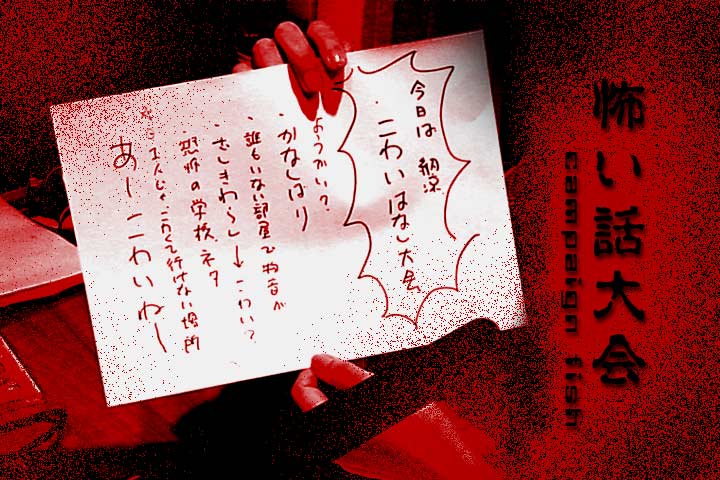 怖い話大会
campaign fish
今日は 納涼
こわいはなし大会
ようかい?
・かなしばり
・誰もいない部屋で物音が
・ざしきわらし→こわい?
恐怖の学校ネタ
1人じゃ、こわくて行けない場所
あーこわいねー